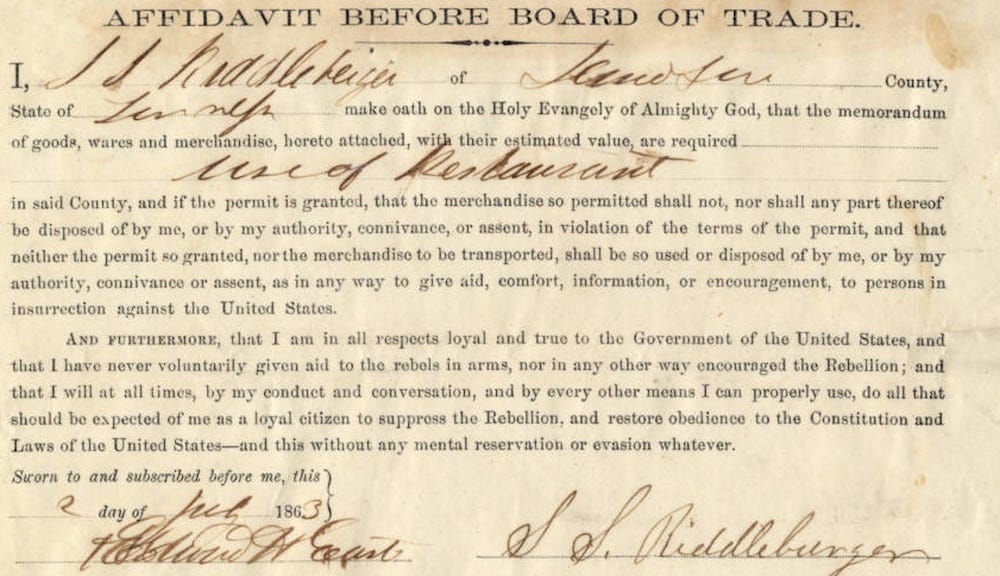 AFFIDAVIT BEFORE BOARD OF TRADE.
I, S S Riddleberger of County,
State of make oath on the Holy Evangely of Almighty God, that the memorandum
of goods, wares and merchandise, hereto attached, with their estimated value, are required
use of Restaurant
in said County, and if the permit is granted, that the merchandise so permitted shall not, nor shall any part thereof
be disposed of by me, or by my authority, connivance, or assent, in violation of the terms of the permit, and that
neither the permit so granted, nor the merchandise to be transported, shall be so used or disposed of by me, or by my
authority, connivance or assent, as in any way to give aid, comfort, information, or encouragement, to persons in
insurrection against the United States.
AND FURTHERMORE, that I am in all respects loyal and true to the Government of the United States, and
that I have never voluntarily given aid to the rebels in arms, nor in any other way encouraged the Rebellion; and
that I will at all times, by my conduct and conversation, and by every other means I can properly use, do all that
should be expected of me as a loyal citizen to suppress the Rebellion, and restore obedience to the Constitution and
Laws of the United States—and this without any mental reservation or evasion whatever.
Sworn to and subscribed before me, this
2 day of July 1863
Edward H East S S. Riddleburger